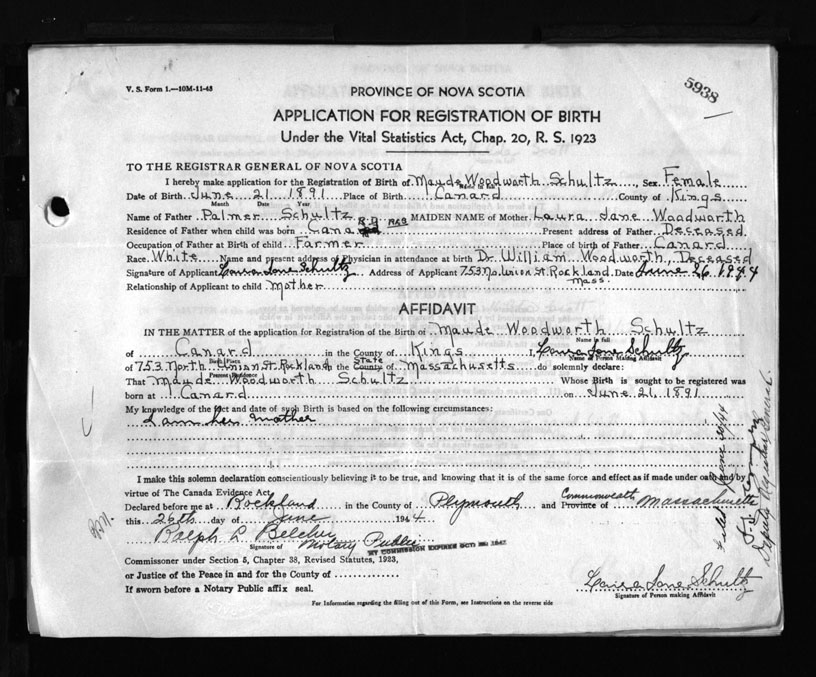 V. S. Form 1.—10M-11-43
5938
PROVINCE OF NOVA SCOTIA
APPLICATION FOR REGISTRATION OF BIRTH
Under the Vital Statistics Act, Chap. 20, R. S. 1923
TO THE REGISTRAR GENERAL OF NOVA SCOTIA
I hereby make application for the Registration of Birth of Maude Woodworth Schultz, Sex Female
Date of Birth June 21 1891 Place of Birth Canard County of Kings
Month Day Year
Name of Father Palmer Schultz MAIDEN NAME of Mother Laura Jane Woodworth
Residence of Father when child was born Canard Present address of Father Deceased
Occupation of Father at Birth of child Farmer Place of birth of Father Canard
Race White Name and present address of Physician in attendance at birth Dr. William Woodworth, Deceased
Signature of Applicant Laura Jane Schultz Address of Applicant 753 No. Union St. Rockland Date June 26, 1944
Mass.
Relationship of Applicant to child Mother
AFFIDAVIT
IN THE MATTER of the application for Registration of the Birth of Maude Woodworth Schultz
Name in full
of Canard in the County of Kings I, Laura Jane Schultz
Birth Place Name of Person Making Affidavit
State
of 753 North Union St. Rockland the County of Massachusetts do solemnly declare:
Present Residence
That Maude Woodworth Schultz Whose Birth is sought to be registered was
born at Canard on June 21, 1891
My knowledge of the fact and date of such Birth is based on the following circumstances:
I am her mother
I make this solemn declaration conscientiously believing it to be true, and knowing that it is of the same force and effect as if made under oath and by
virtue of The Canada Evidence Act.
Commonwealth
Declared before me at Rockland in the County of Plymouth and Province of Massachusetts
this 26th day of June 1944
Ralph L Belcher
Signature of Notary Public
MY COMMISSION EXPIRES OCT.
Commissioner under Section 5, Chapter 38, Revised Statutes, 1923,
or Justice of the Peace in and for the County of
If sworn before a Notary Public affix seal.
Laura Jane Schultz
Signature of Person making Affidavit
For Information regarding the filling out of this Form, see Instructions on the reverse side
Filed June
Deputy Registrar General